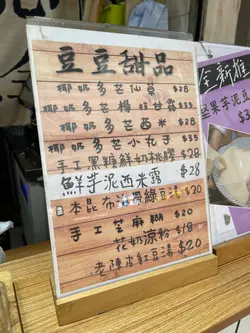 豆豆甜品
椰奶多芒仙草 $28
椰奶多芒楊枝甘露 $35
椰奶多芒西米 $28
椰奶多芒小丸子 $35
手工黑糖鮮奶木槵膠 $38
鮮芋泥西米露 $28
日本昆布海帶綠豆湯 $20
手工芝麻糊 $20
花奶涼粉 $18
老陳皮紅豆湯 $20
全新推
堅果芋泥豆
$3